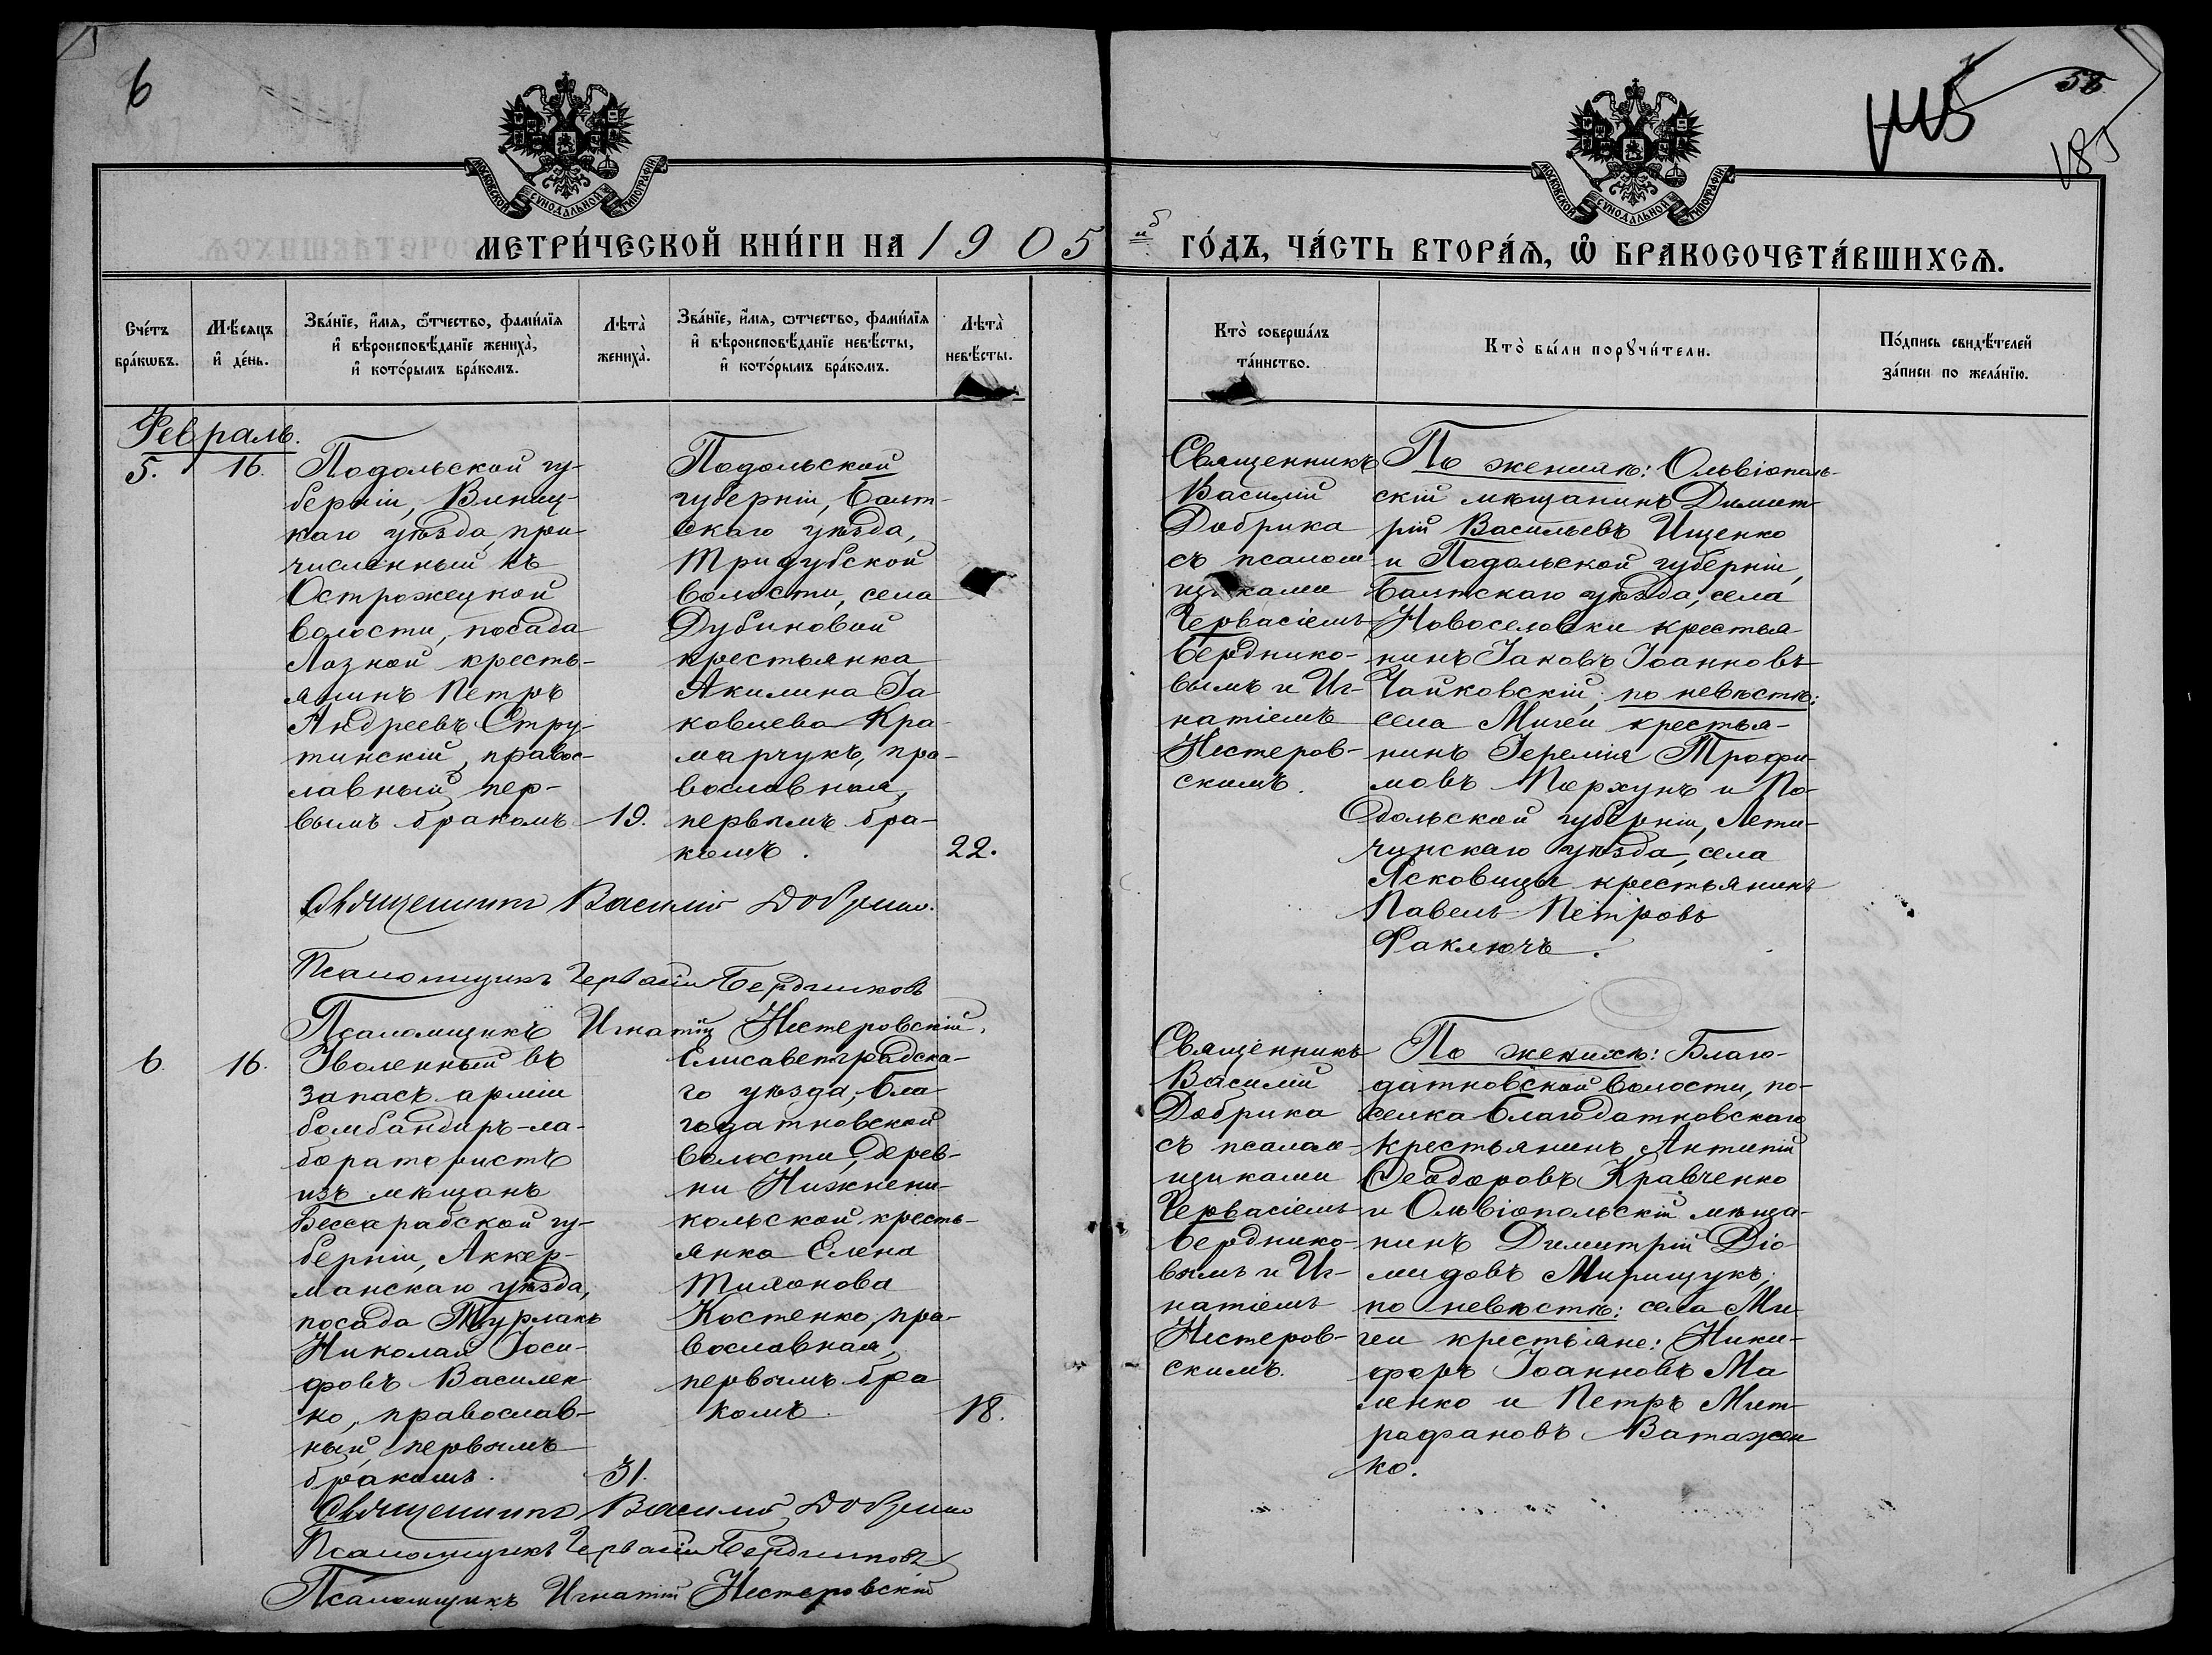 6
58
185
МОСКОВСКОЙ СѴНОДАЛЬНОЙ ТИПОГРАФІИ
МОСКОВСКОЙ СѴНОДАЛЬНОЙ ТИПОГРАФІИ
МЕТРИ́ЧЕСКОЙ КНИ́ГИ НА 1905ый ГО́ДЪ, ЧА́СТЬ ВТОРА́Ѧ, Ѽ БРАКОСОЧЕТА́ВШИХСѦ.
Сче́тъ
бра́кѡвъ.
Мѣ́сяцъ
и҆ де́нь.
Зва́нїе, и҆́мѧ, ѻ҆́тчество, фами́лїѧ
и҆ вѣроисповѣ́данїе жениха̀,
и҆ кото́рымъ бра́комъ.
Лѣта̀
жениха̀.
Зва́нїе, и҆́мѧ, ѻ҆́тчество, фами́лїѧ
и҆ вѣроисповѣ́данїе невѣ́сты,
и҆ кото́рымъ бра́комъ.
Лѣта̀
невѣ́сты.
Кто̀ соверша́лъ
та́инство.
Кто̀ бы́ли порꙋчи́тели.
По́дпись свидѣ́телей
за́писи по жела́нїю.
Февраль.
5.
16.
Подольской гу-
берніи, Винниц-
каго уѣзда, при
численный къ
Острожецкой
волости, посада
Лозной кресть-
янинъ Петръ
Андреевъ Стру-
тинскій, правос-
лавный, пер-
вымъ бракомъ
19.
Подольской
губерніи, Балт-
скаго уѣзда,
Тридубской
волости, села
Дубиновой
крестьянка
Акилина Іа-
ковлева Кра-
марчукъ, пра-
вославная,
первымъ бра-
комъ.
22.
Священникъ
Василій
Добрика
съ псалом-
щиками
Червасіемъ
Берднико-
вымъ и Иг-
натіемъ
Нестеров-
скимъ.
По женихѣ: Ольвіополь-
скій мѣщанинъ Димит-
рій Васильевъ Ищенко
и Подольской губерніи,
Балтскаго уѣзда, села
Новоселовки крестья
нинъ Іаковъ Іоанновъ
Чайковскій; по невѣстѣ:
села Мигеи крестья-
нинъ Іеремія Трофи-
мовъ Порхунъ и По-
дольской губерніи, Лети-
чинскаго уѣзда, села
Ясковицы крестьянинъ
Павелъ Петровъ
Фаключъ.
Священникъ Василій Добрика.
Псаломщикъ Червасій Бердниковъ
Псаломщикъ Игнатій Нестеровскій.
6.
16.
Уволенный въ
запасъ арміи
бомбандиръ-ла-
бораториств
изъ мѣщанъ
Бессарабской гу-
берніи, Аккер-
манскаго уѣзда,
посада Турлакъ
Николай Іоси-
фовъ Василен
ко, православ-
ный, первымъ
бракомъ.
31.
Елисаветградска-
го уѣзда, Бла
годатновской
волости, дерев-
ни Нижнени-
кольской кресть-
янка Елена
Тимонова
Костенко, пра-
вославная,
первымъ бра
комъ.
18.
Священникъ
Василій
Добрика
съ псалом-
щиками
Червасіемъ
Берднико-
вымъ и Иг-
натіемъ
Нестеров-
скимъ.
По женихѣ: Благо-
датновской волости, по-
селка Благодатновскаго
крестьянинъ Антипій
Ѳеодоровъ Кравченко
и Ольвіопольскій мѣща-
нинъ Димитрій Діо-
мидовъ Мирищукъ;
по невѣстѣ: села Ми
геи крестьяне: Ники-
форъ Іоанновъ Ма
ленко и Петръ Мит-
рофановъ Ватажен
ко.
Священникъ Василій Добрика
Псаломщикъ Червасій Бердниковъ
Псаломщикъ Игнатій Нестеровскій